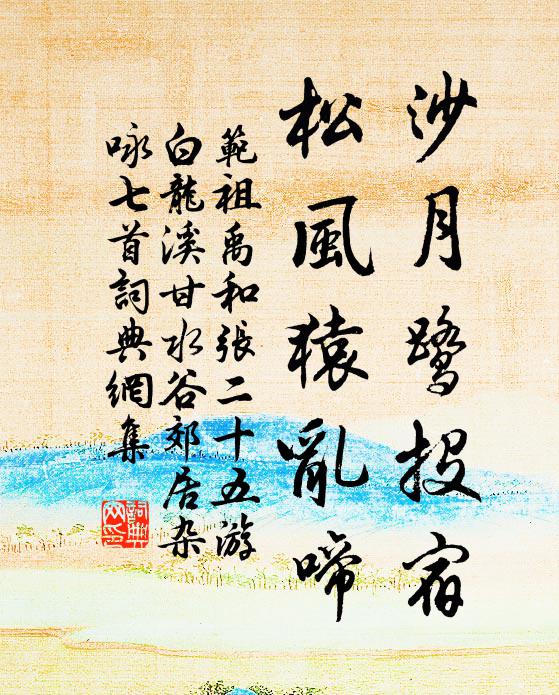 沙月鹭投宿
松風猿亂啼
範祖禹和張二十五游
白龍溪甘水谷郊居杂
咏七首詞典網集
詞典
网印